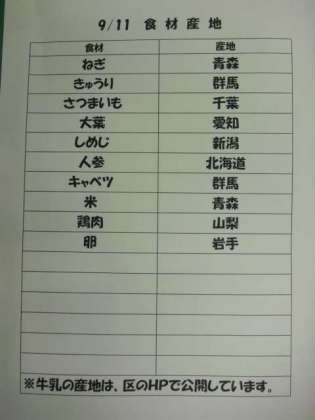 9/11 食材産地
食材 産地
ねぎ 青森
きゅうり 群馬
さつまいも 千葉
大葉 愛知
しめじ 新潟
人参 北海道
キャベツ 群馬
米 青森
鶏肉 山梨
卵 岩手
※牛乳の産地は、区のHPで公開しています。